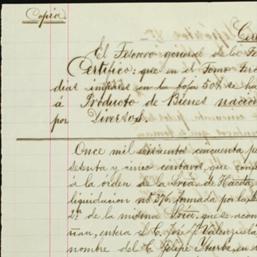 Copia
El Tesorero general de la
Certifico: que en el Tomo
dias impares en la foja 50
á Producto de Bienes nacio
por Diversos.
Once mil seiscientos cincuenta
setenta y cinco centavos, que
á la orden de la Sría. de Hacda
liquidacion no. 270 formada por la
2ª de la misma Sría. que se acom
ñan, entera el C. José J. Valenzuela
nombre del C. Felipe Iturbe en